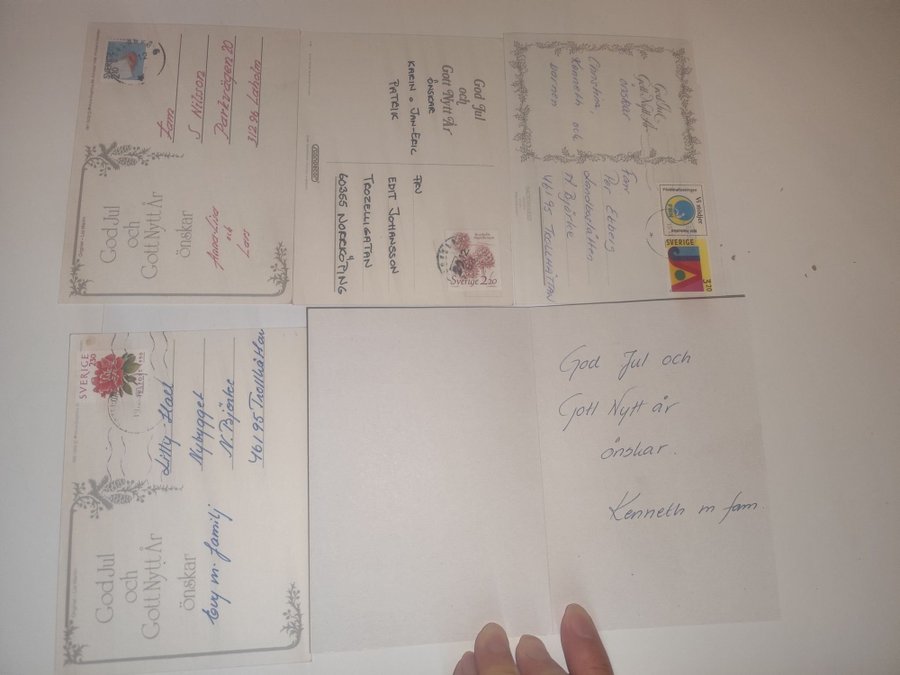 God Jul
och
Gott Nytt År
önskar
Anna-Lisa
och
Lars
SVERIGE
Fam
S Nilsson
Parkvägen 20
312 96 Laholm
God Jul
och
Gott Nytt År
ÖNSKAR
KARIN o JAN-ERIC
PATRIK
Sverige 2.20
FRU
EDIT JOHANSSON
TROZELLIGATAN
60355 NORRKÖPING
God Jul
Gott Nytt År
önskar
Christina,
Kenneth och
barnen
SVERIGE
3.20
Fam
Per Ekberg
N Björke
461 95 TROLLHÄTTAN
God Jul
och
Gott Nytt År
önskar
Evy m. familj
SVERIGE
Litty Hall
Nybygget
N. Björke
461 95 Trollhättan
God Jul och
Gott Nytt år
önskar.
Kenneth m fam.